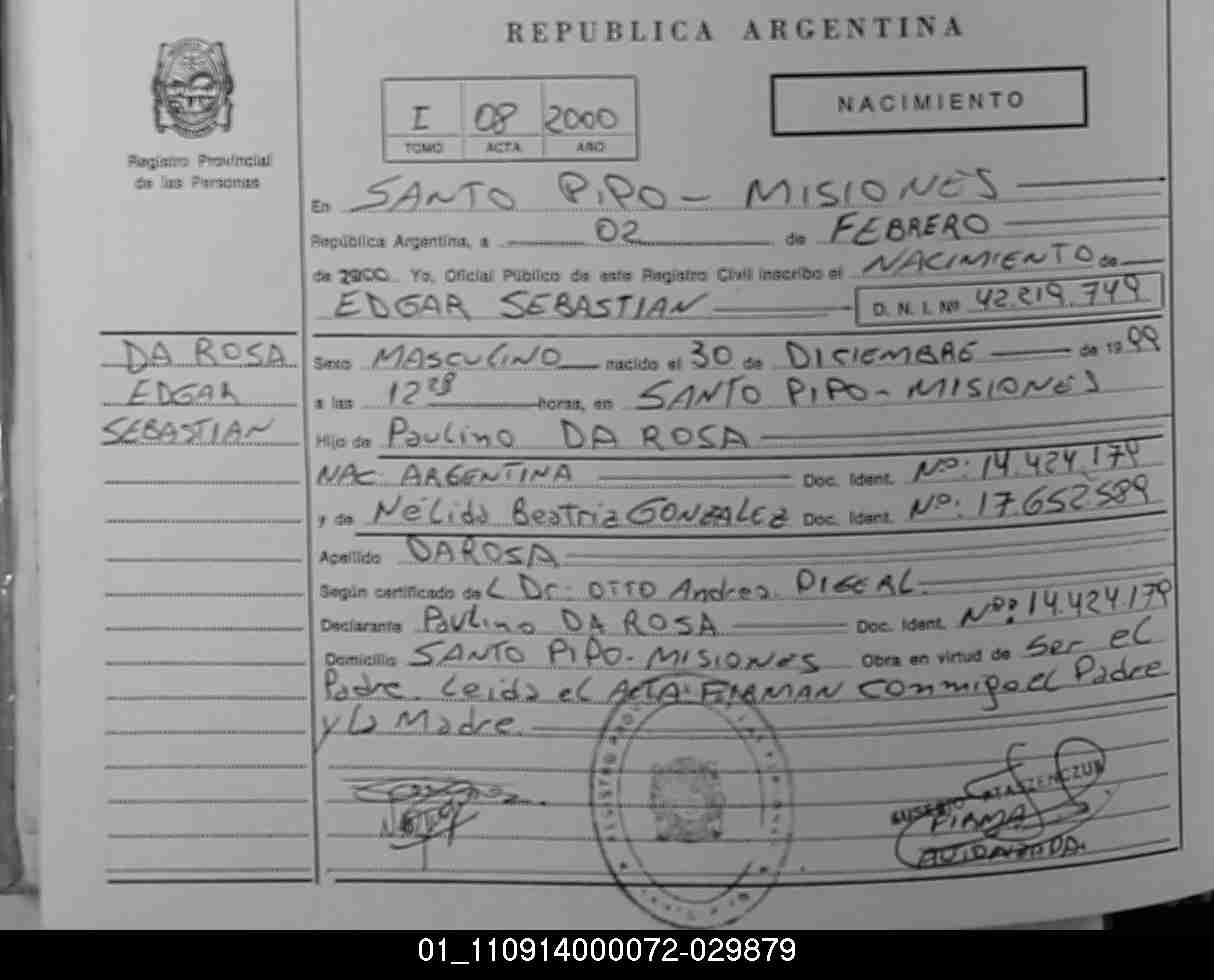 REPUBLICA ARGENTINA
Registro Provincial
de las Personas
I 08 2000
TOMO ACTA AÑO
NACIMIENTO
En SANTO PIPO - MISIONES
República Argentina, a 02 de FEBRERO
de 2000 Yo, Oficial Público de este Registro Civil inscribo el NACIMIENTO de
EDGAR SEBASTIAN D. N. I. Nº 42.219.749
DA ROSA
EDGAR
SEBASTIAN
Sexo MASCULINO nacido el 30 de DICIEMBRE de 1999
a las 12 28 horas, en SANTO PIPO - MISIONES
Hijo de Paulino DA ROSA
NAC. ARGENTINA Doc. Ident. Nº: 14.424.179
y de Nélida Beatriz GONZALEZ Doc. Ident. Nº: 17.652.589
Apellido DA ROSA
Según certificado de L Dr. OTTO Andres
Declarante Paulino DA ROSA Doc. Ident. Nº: 14.424.179
Domicilio SANTO PIPO - MISIONES Obra en virtud de Ser el
Padre. Leida el ACTA FIRMAN conmigo el Padre
y la Madre.
REGISTRO
FIRMA
AUTORIZADA
01_110914000072-029879